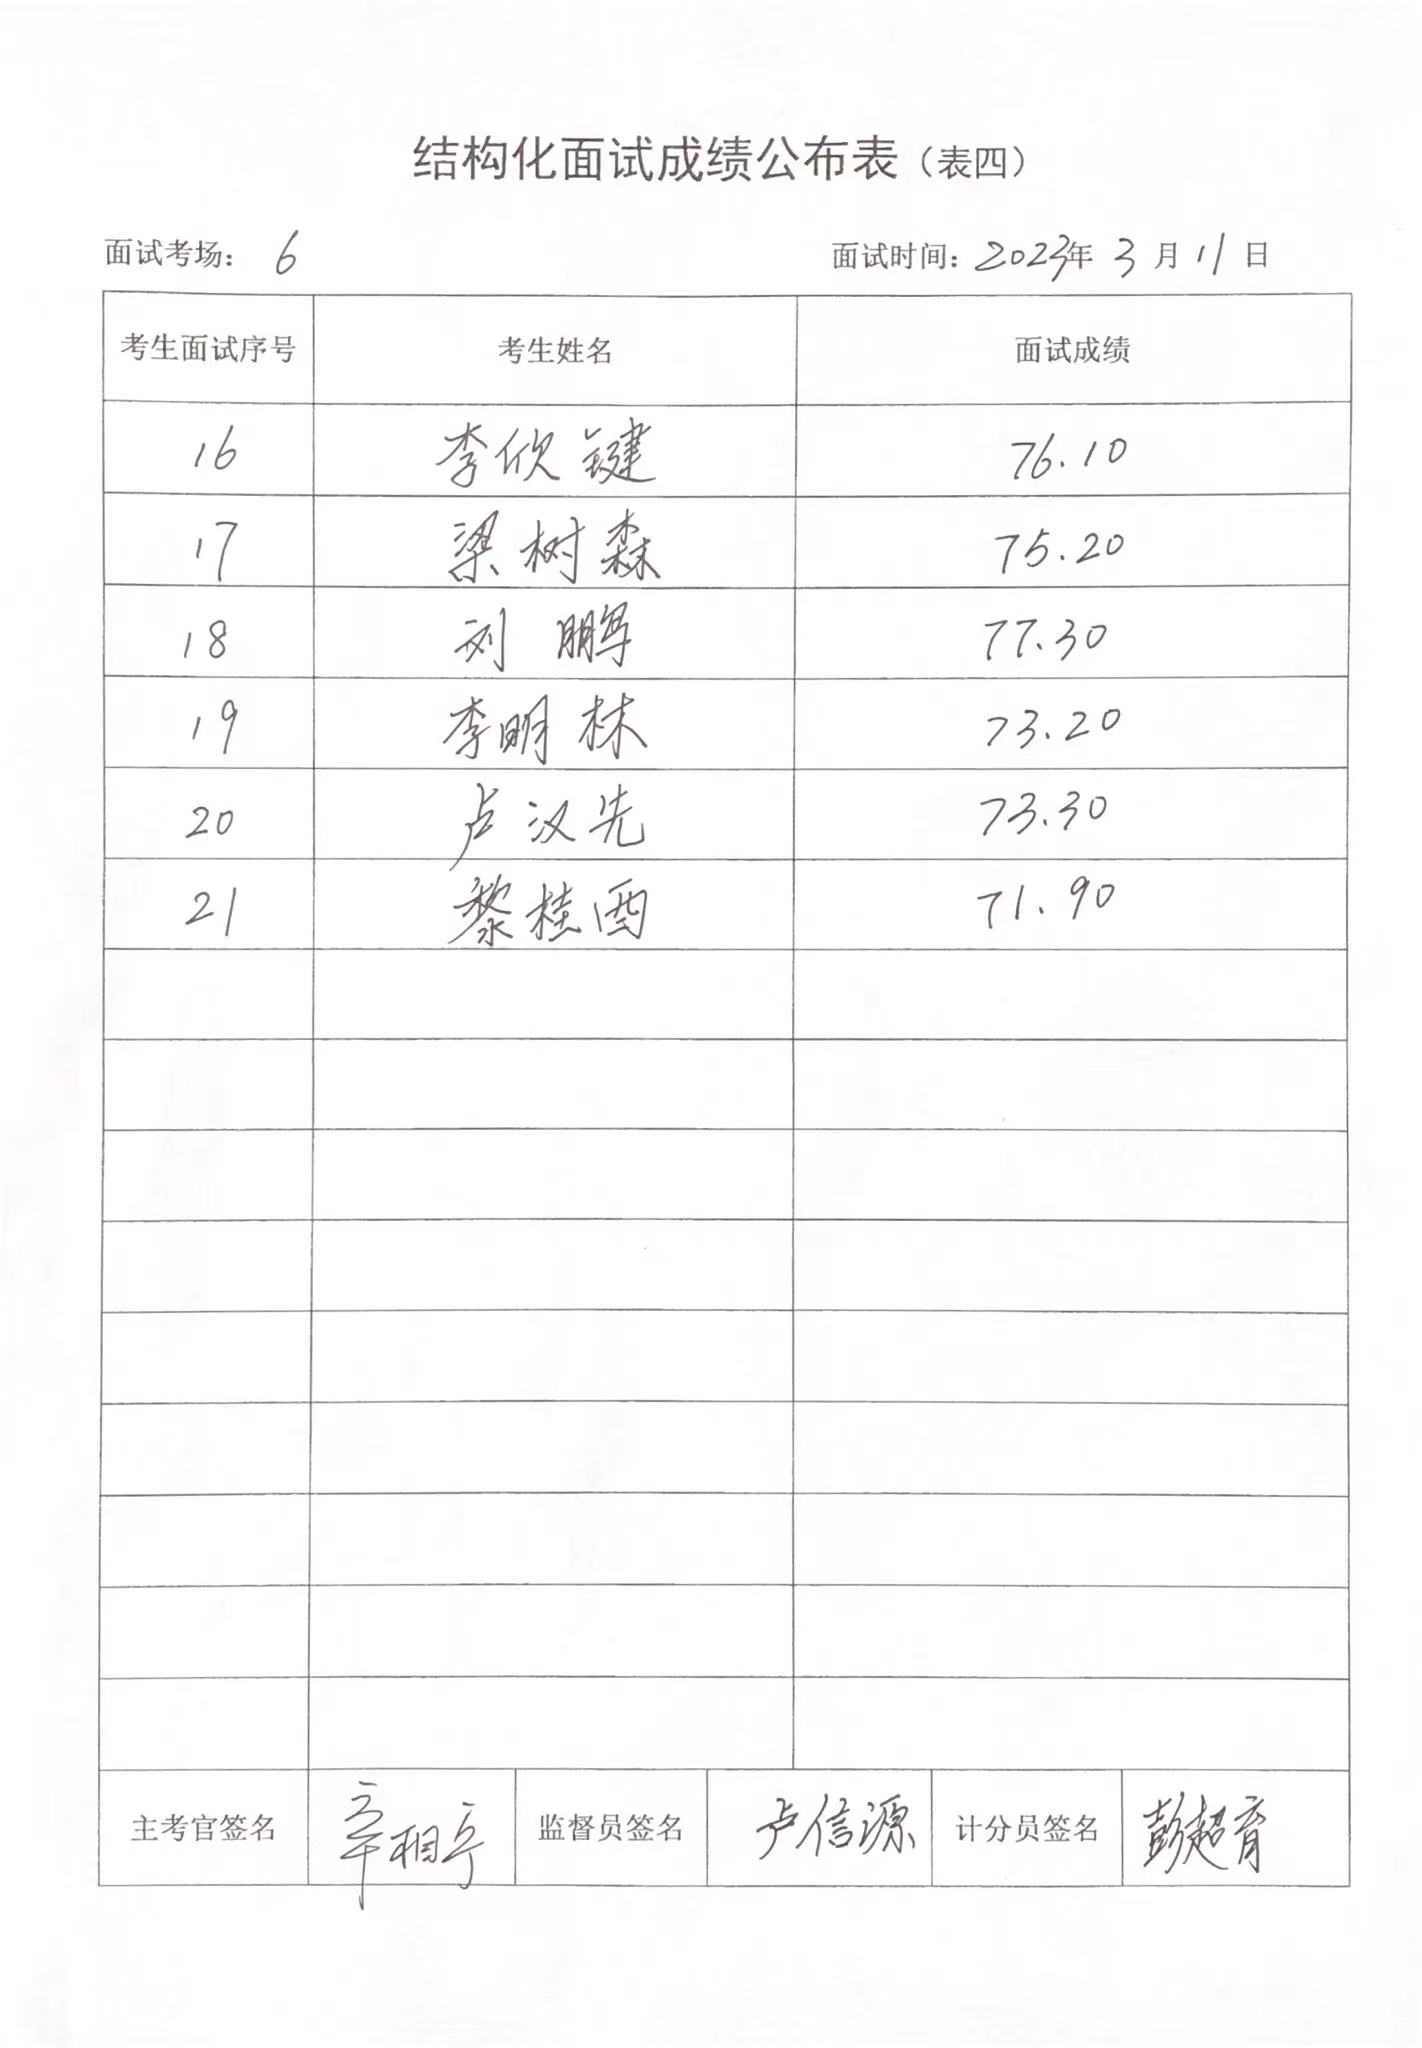 结构化面试成绩公布表（表四）
面试考场： 6 面试时间：2023年 3 月 11 日
考生面试序号 考生姓名 面试成绩
16 李欣键 76.10
17 梁树森 75.20
18 刘鹏 77.30
19 李明林 73.20
20 卢汉先 73.30
21 黎桂酉 71.90
主考官签名 辛相宇 监督员签名 卢信源 计分员签名 彭超育